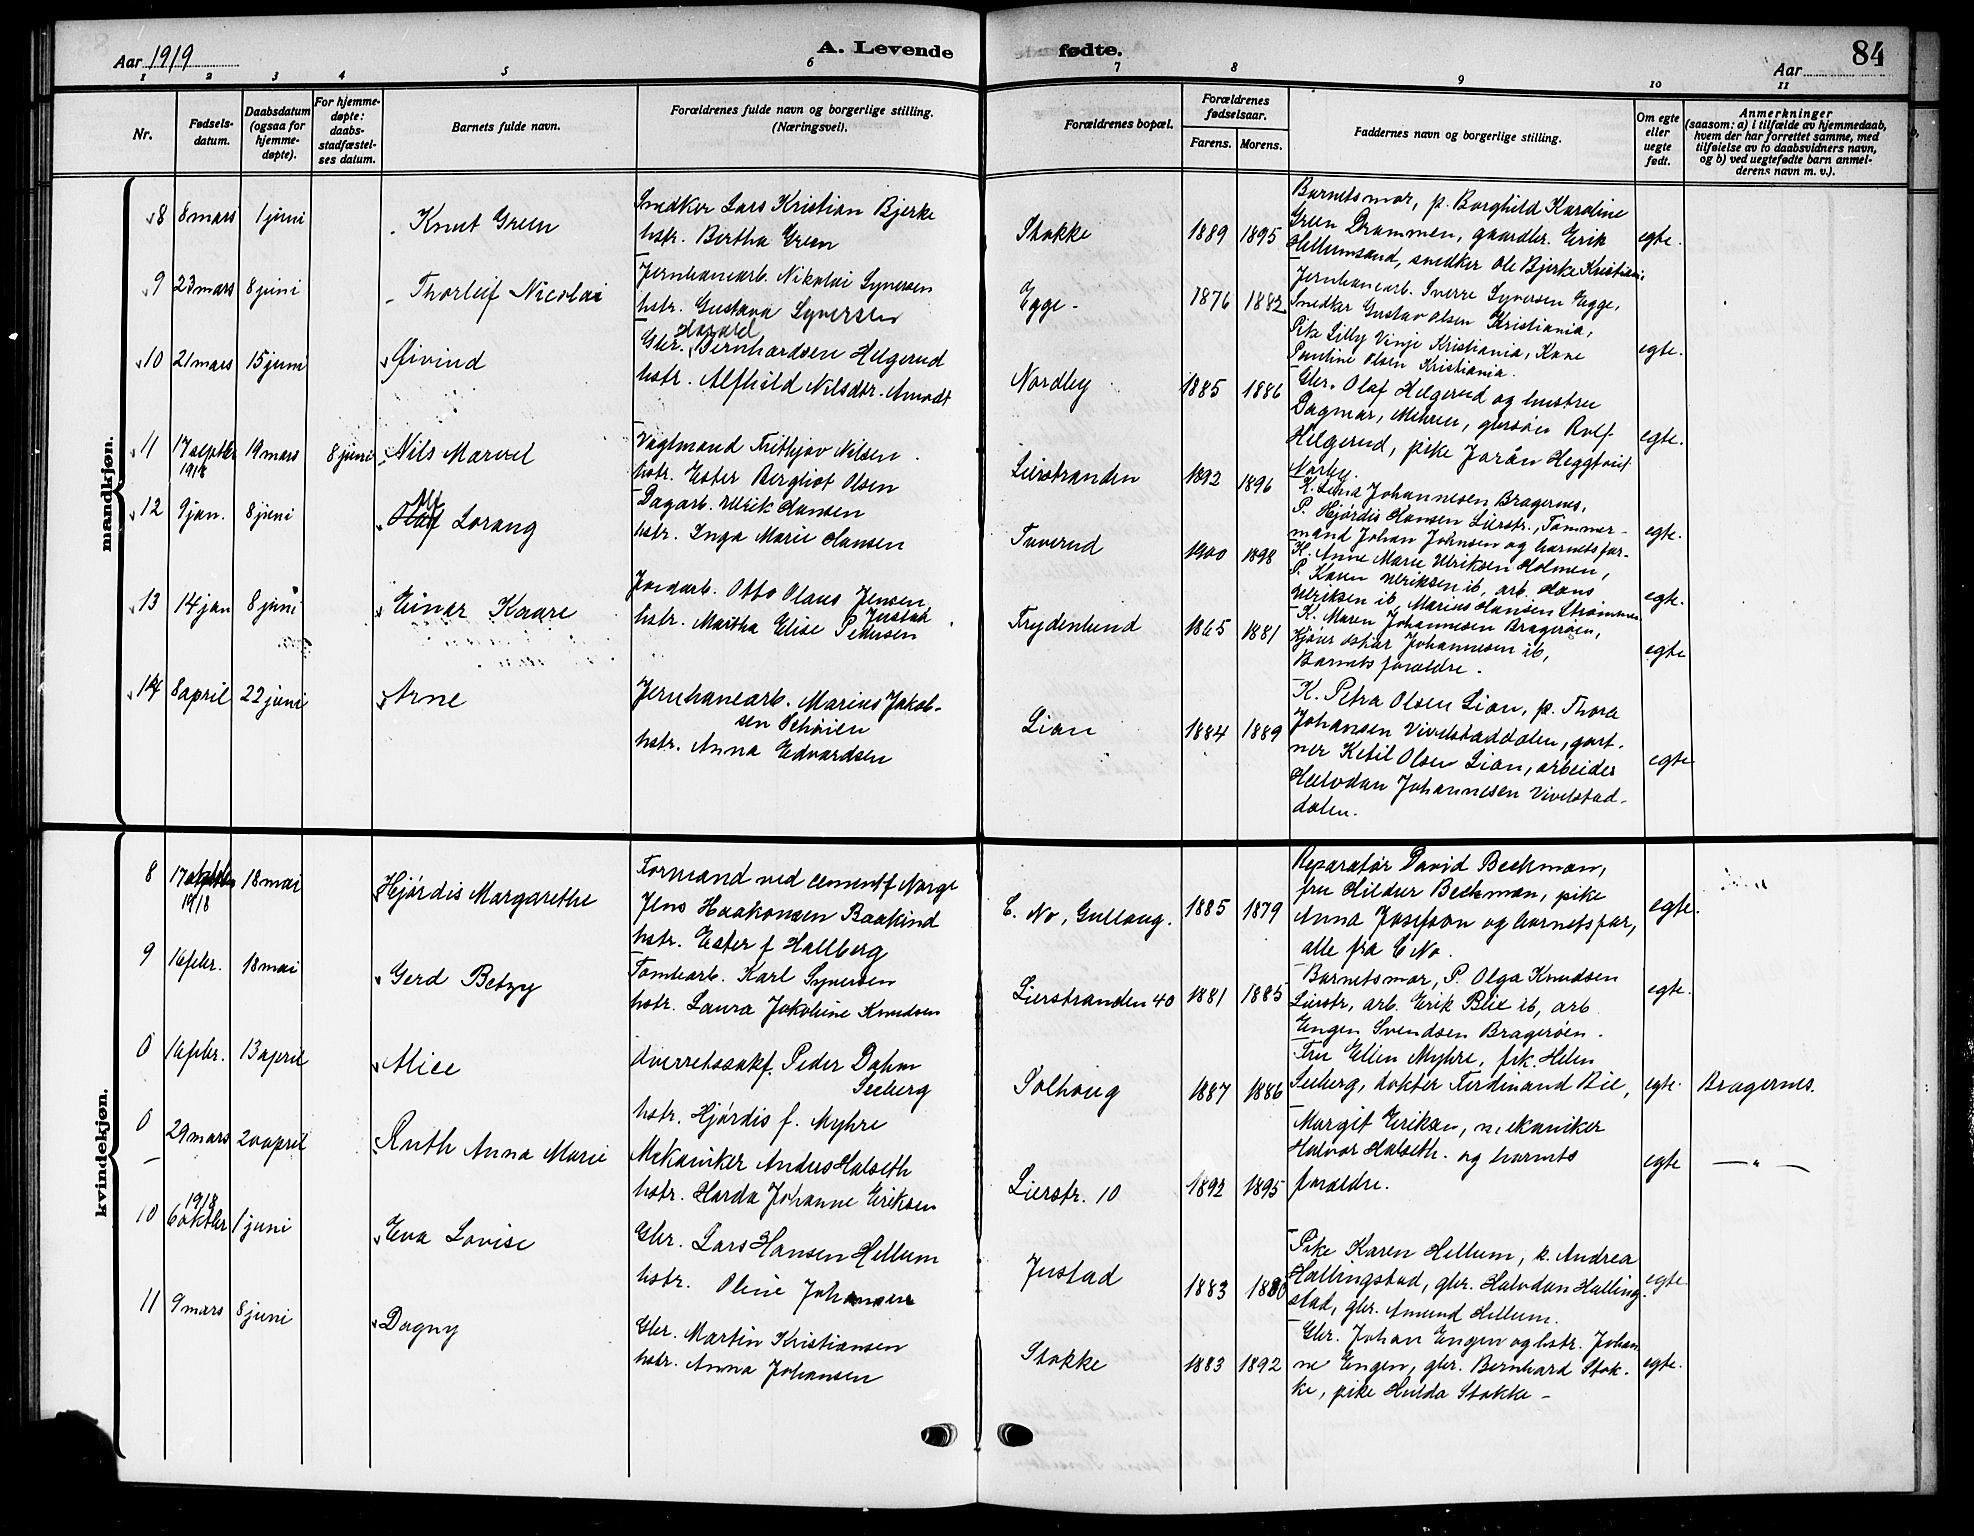 Aar 1919
A. Levende
fødte.
Aar
84
1 2 3 4 5 6 7 8 9 10 11
Nr.
Fødsels-
datum.
Daabsdatum
(ogsaa for
hjemme-
døpte).
For hjemme-
døpte:
daabs-
stadfæstel-
ses datum.
Barnets fulde navn.
Forældrenes fulde navn og borgerlige stilling.
(Næringsvei).
Forældrenes bopæl.
Forældrenes
fødselsaar.
Farens. Morens.
Faddernes navn og borgerlige stilling.
Om egte
eller
uegte
født.
Anmerkninger
(saasom: a) i tilfælde av hjemmedaab,
hvem der har forrettet samme, med
tilføielse av to daabsvidners navn,
og b) ved uegtefødte barn anmel-
derens navn m. v.).
mandkjøn.
8 8 mars 1 juni Knut Green
Snedker Lars Kristian Bjerke
hstr. Bertha Green
Stokke 1889 1895
Barnetsmor, p. Borghild Karoline
Green Drammen, gaardbr. Erik
Hellumsand, snedker Ole Bjerke Kristiania
egte.
9 23 mars 8 juni Thorleif Nicolai
Jernbanearb. Nikolai Syversen
hstr. Gustava Syversen
Egge 1876 1882
Jernbanearb. Sverre Syversen Egge,
Snedker Gustav Olsen Kristiania,
Pike Lilly Vinje Kristiania, Kone
Pauline Olsen Kristiania.
egte.
10 21 mars 15 juni Øivind
Gbr. Bernhardsen Helgerud
hstr. Alfhild Nilsdtr. Amodt
Nordby 1885 1886
Gbr. Olaf Helgerud og hustru
Dagmar, Mehren, gbrsøn Rolf
Helgerud, pike Jorån Heggtveit
Norby.
egte.
11 17 septbr 1918 19 mars 8 juni Nils Marcel
Vagtmand Frithjov Nilsen
hstr. Ester Bergliot Olsen
Lierstranden 1892 1896
K. Lina Johannesen Bragernes,
P. Hjørdis Hansen Lierstr., Tømmer-
mand Johan Johnsen og barnetsfar.
egte.
12 9 jan. 8 juni Olaf Alf Lorang
Dagarb. Ulrik Hansen
hstr. Inga Marie Hansen
Tuverud 1900 1898
K. Anne Marie Ulriksen Holmen,
P. Karen Ulriksen ib, arb. Hans
Ulriksen ib, Marius Hansen Strømmen
egte.
13 14 jan 8 juni Einar Kaare
Jordarb. Otto Olaus Jensen
Justad
hstr. Martha Elise Pedersen
Frydenlund 1865 1881
K. Maren Johannesen Bragerøen,
Kjører Oskar Johannesen ib,
Barnets forældre.
egte
14 8 april 22 juni Arne
Jernbanearb. Marius Jakob-
sen Schøien
hstr. Anna Edvardsen
Lian 1884 1889
K. Petra Olsen Lian, p. Thora
Johansen Vivelstaddalen, gart-
ner Ketil Olsen Lian, arbeider
Halvdan Johannesen Vivelstad-
dalen.
egte
kvindekjøn.
8 17 1918 18 mai Hjørdis Margarethe
Formand ved cementf Norge
Jens Haakonsen Baakind
hstr. Ester f Hallberg
C. No, Gullaug. 1885 1879
Reparatør David Beckman,
fru Hildur Beckman, pike
Anna Josefson og barnetsfar,
alle fra C No.
egte.
9 16 febr. 18 mai Gerd Betzy
Tomtearb. Karl Syversen
hstr. Laura Jakobine Knudsen
Lierstranden 40 1881 1885
Barnetsmor, P. Olga Knudsen
Lierstr, arb. Erik Blix ib, arb.
Engen Svendsen Bragerøen.
egte.
0 16 febr. 13 april Alice
Overretssakf. Peder Dahm
Seeberg
hstr. Hjørdis f. Myhre
Solhaug 1887 1886
Fru Ellen Myhre, frk. Helen
Seeberg, dokter Ferdinand Bie,
egte. Bragernes.
0 29 mars 20 april Ruth Anna Marie
Mekaniker Anders Halseth
hstr. Harda Johanne Eriksen
Lierstr. 10 1892 1895
Margit Eriksen, mekaniker
Halvor Halseth. og barnets
forældre.
egte — " —
10 1918 6 oktbr 1 juni Eva Lovise
Gbr. Lars Hansen Hellum
hstr. Oline Johansen
Justad 1883 1880
Pike Karen Hellum, p. Andrea
Hallingstad, gbr. Halvdan Halling-
stad, gbr. Amund Hellum.
egte
11 9 mars 8 juni Dagny
Gbr. Martin Kristiansen
hstr. Anna Johansen
Stokke 1883 1892
Gbr. Johan Engen og hstr. Johan
ne Engen, gbr. Bernhard Stok-
ke, pike Hulda Stokke –
egte.